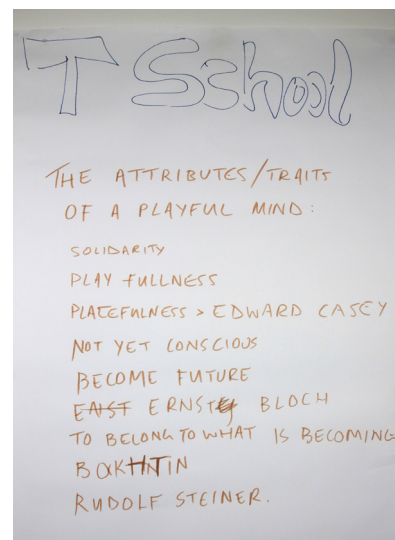 T School
THE ATTRIBUTES/TRAITS
OF A PLAYFUL MIND:
SOLIDARITY
PLAY FULLNESS
PLACEFULNESS > EDWARD CASEY
NOT YET CONSCIOUS
BECOME FUTURE
EAST ERNST BLOCH
TO BELONG TO WHAT IS BECOMING
BAKHTIN
RUDOLF STEINER.